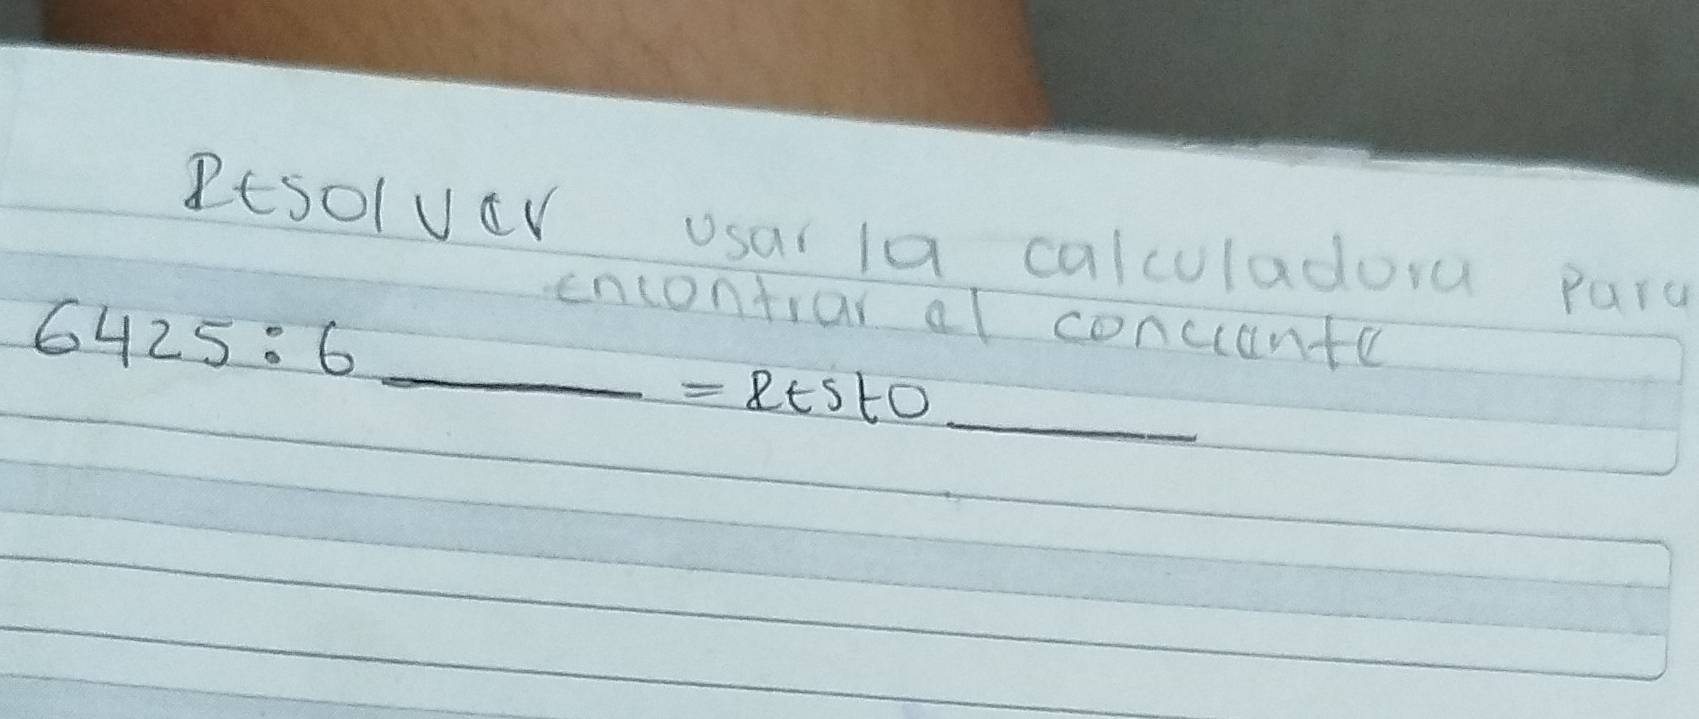 Resolver usar la calculadora para
encontrar el conciente
6425:6 ______ = Resto ______